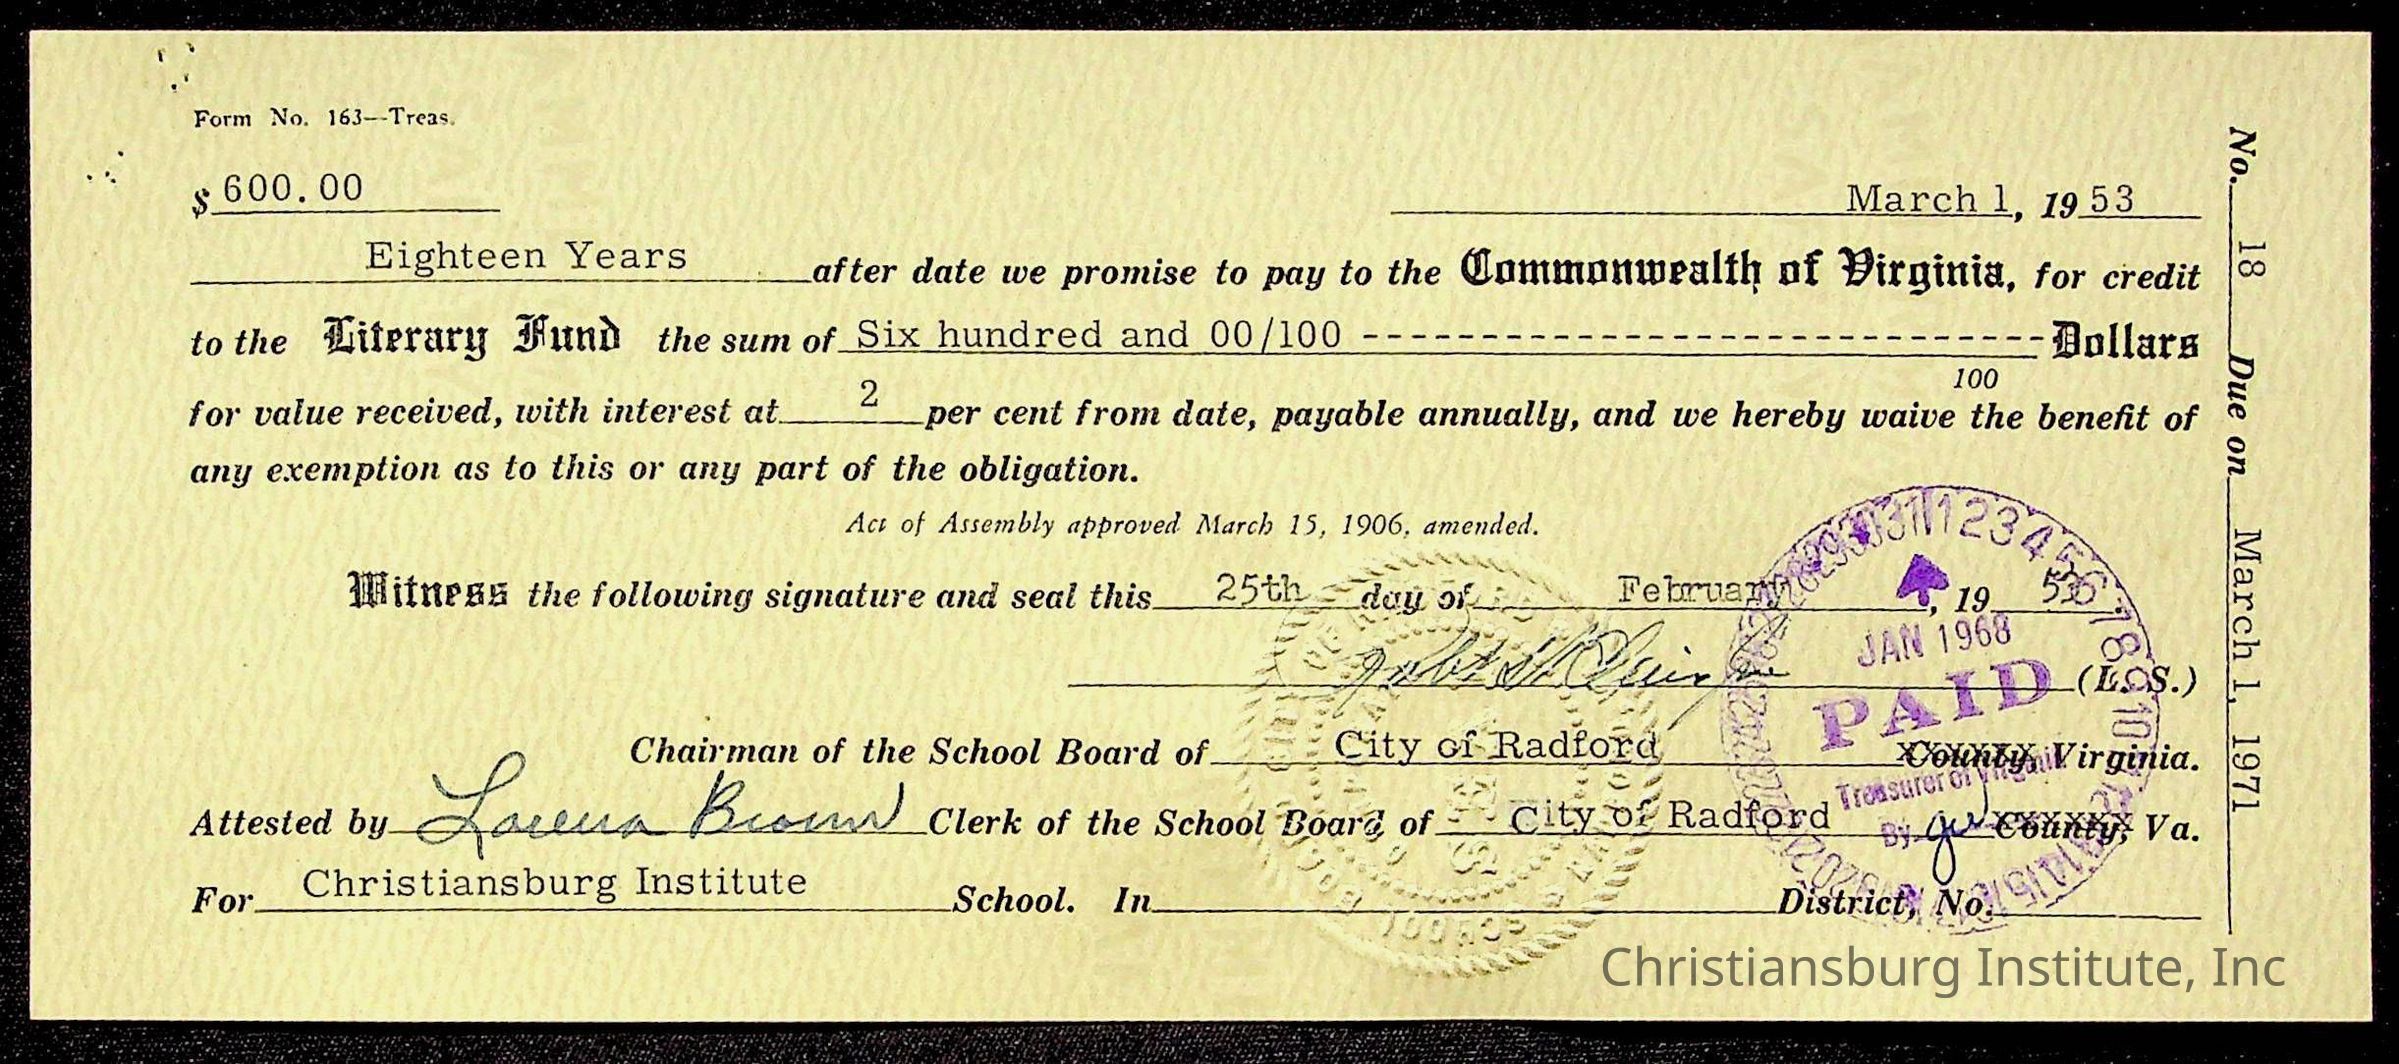 Form No. 163—Treas.
$ 600.00
March 1, 19 53
Eighteen Years after date we promise to pay to the Commonwealth of Virginia, for credit
to the Literary Fund the sum of Six hundred and 00/100 ------------------------------ Dollars
100
for value received, with interest at 2 per cent from date, payable annually, and we hereby waive the benefit of
any exemption as to this or any part of the obligation.
Act of Assembly approved March 15, 1906, amended.
Witness the following signature and seal this 25th day of February, 19 53.
(L. S.)
Chairman of the School Board of City of Radford County, Virginia.
Attested by Lorena Brown Clerk of the School Board of City of Radford County, Va.
For Christiansburg Institute School. In District, No.
No. 18 Due on March 1, 1971
JAN 1968
PAID
Treasurer of Virginia
By
Christiansburg Institute, Inc